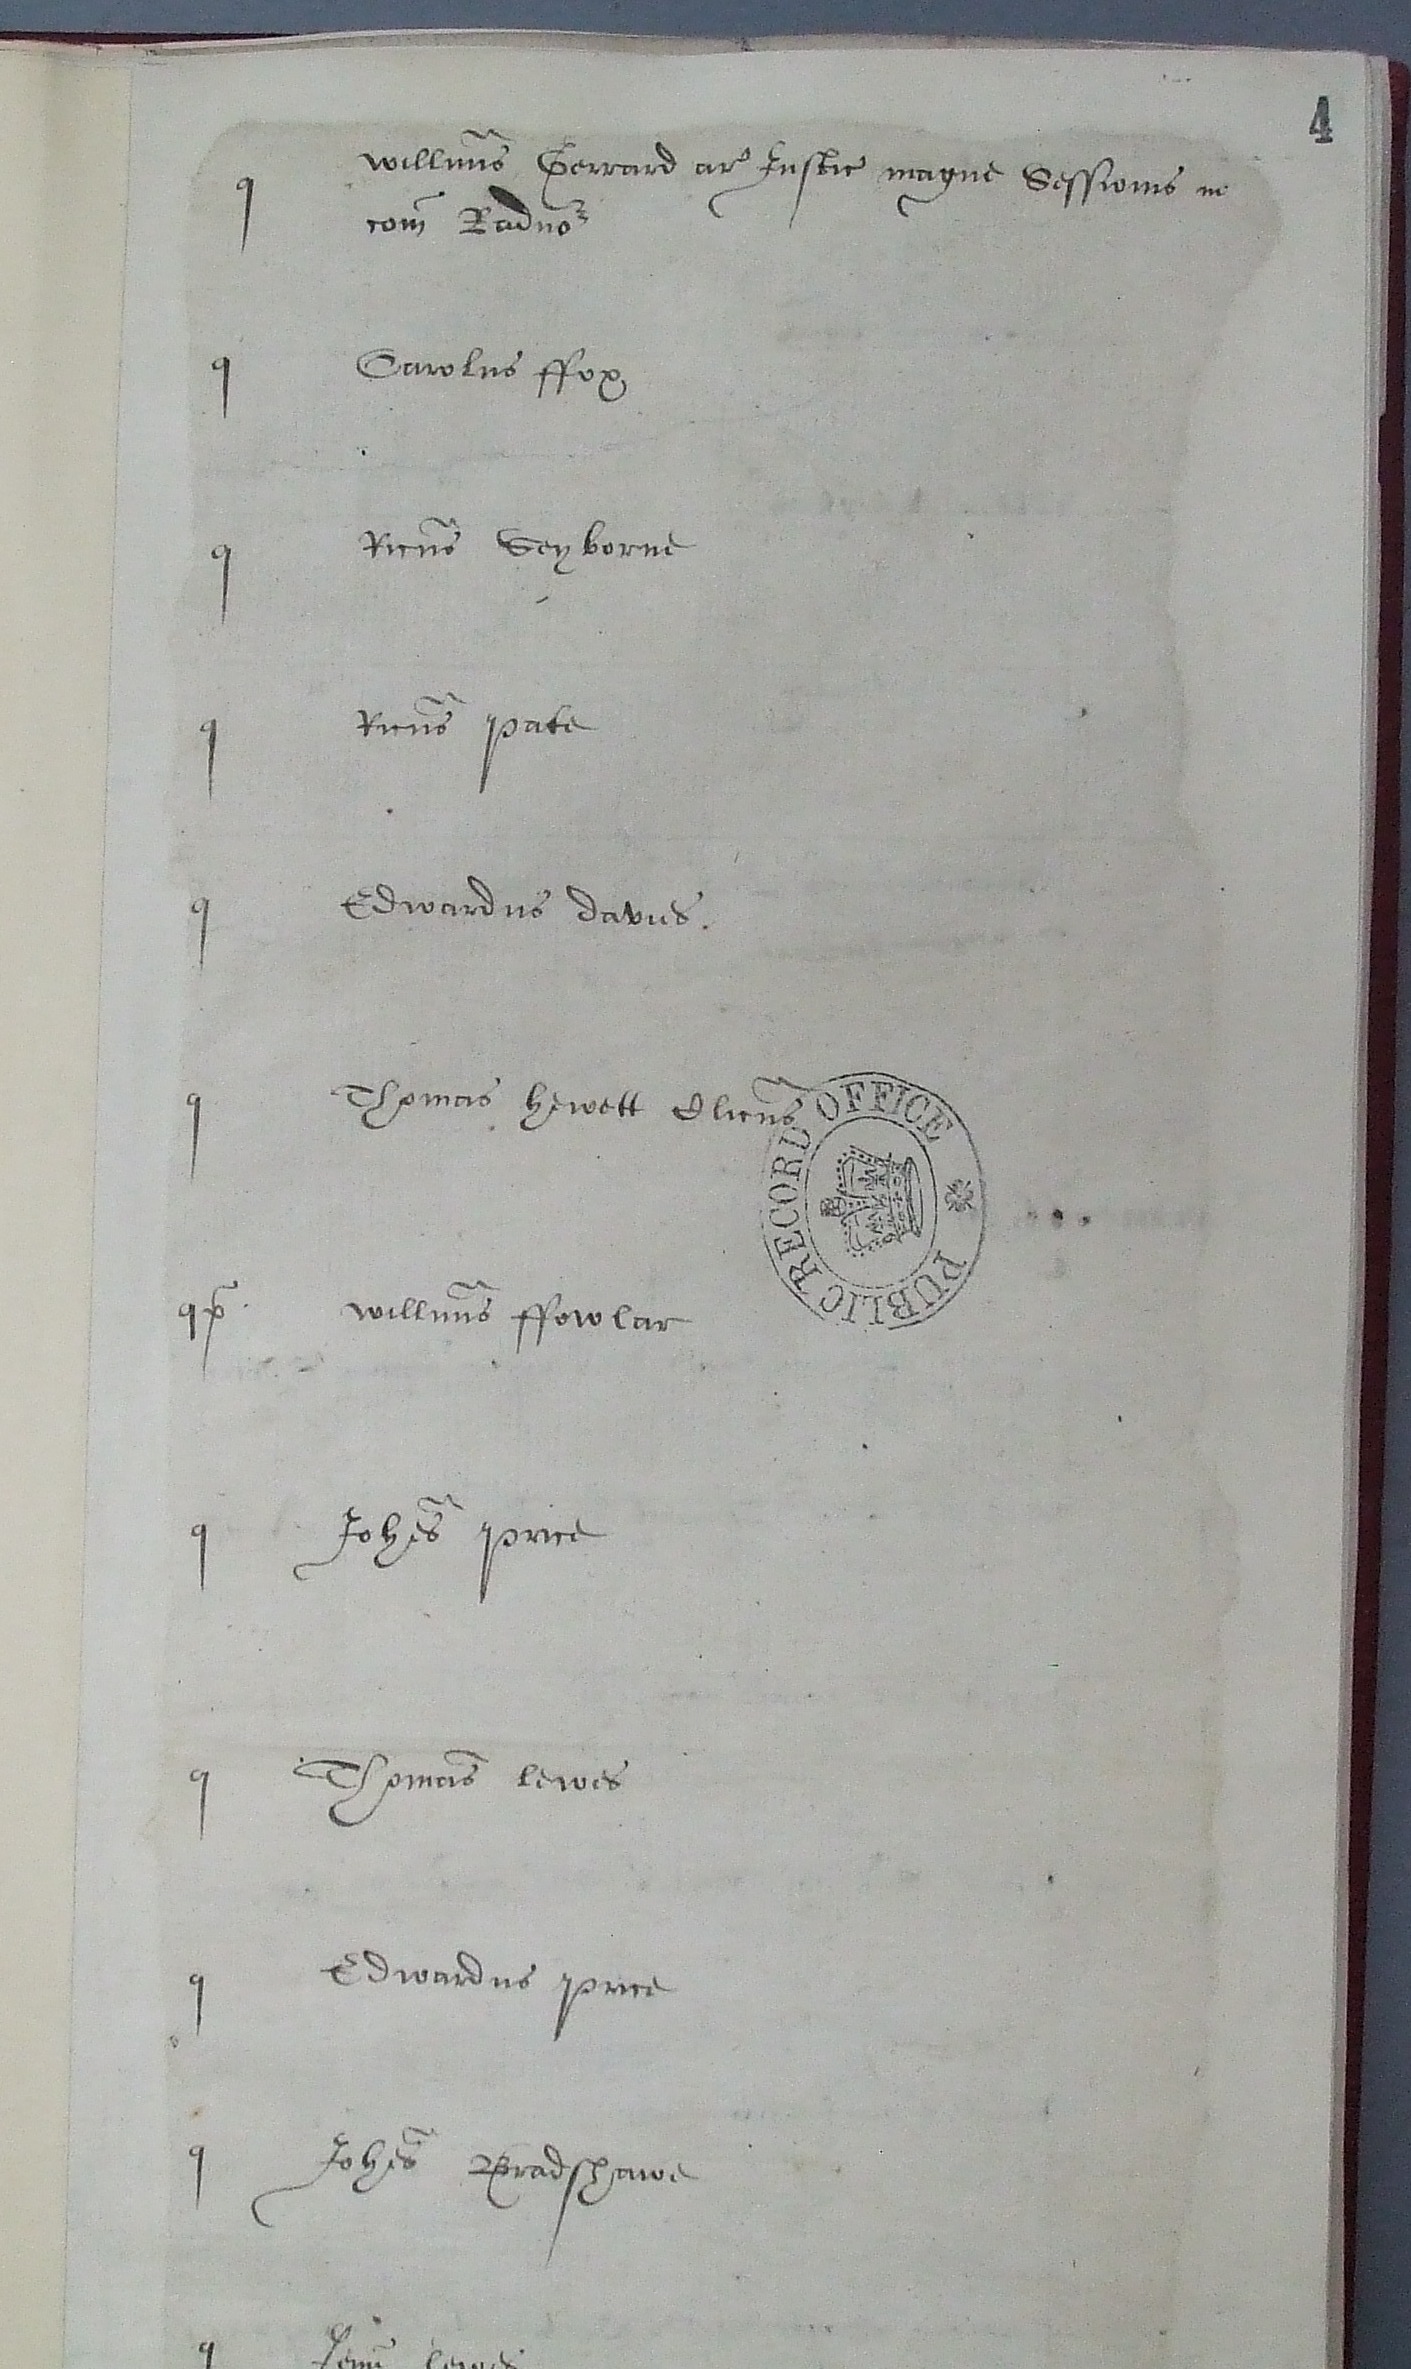 4
q willmus Gerrard ar Justic magne Sessionis in
com Radno
q Carolus ffox
q Ricus Seyborne
q Ricus pate
q Edwardus davies.
q Thomas hewett Clicus
PUBLIC RECORD OFFICE
q willmus ffowlar
q Johes price
q Thomas lewes
q Edwardus price
q Johes Bradshawe
q lewes